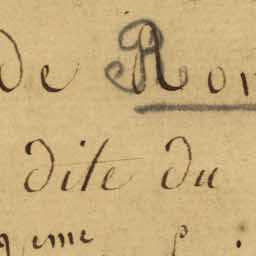 de Ro
dite du
eme